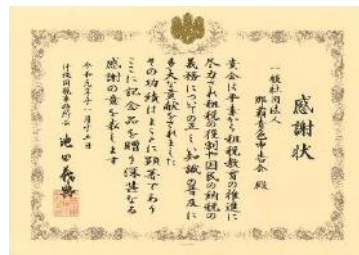 感謝状
一般社団法人
那覇青色申告会 殿
貴会は平素から租税教育の推進に
尽力され租税の役割や国民の納税の
義務についての正しい知識の普及に
多大な貢献をされました
その功績はまことに顕著であり
ここに記念品を贈り深甚なる
感謝の意を表します
令和元年十一月十五日
沖縄国税事務所長
池田義典